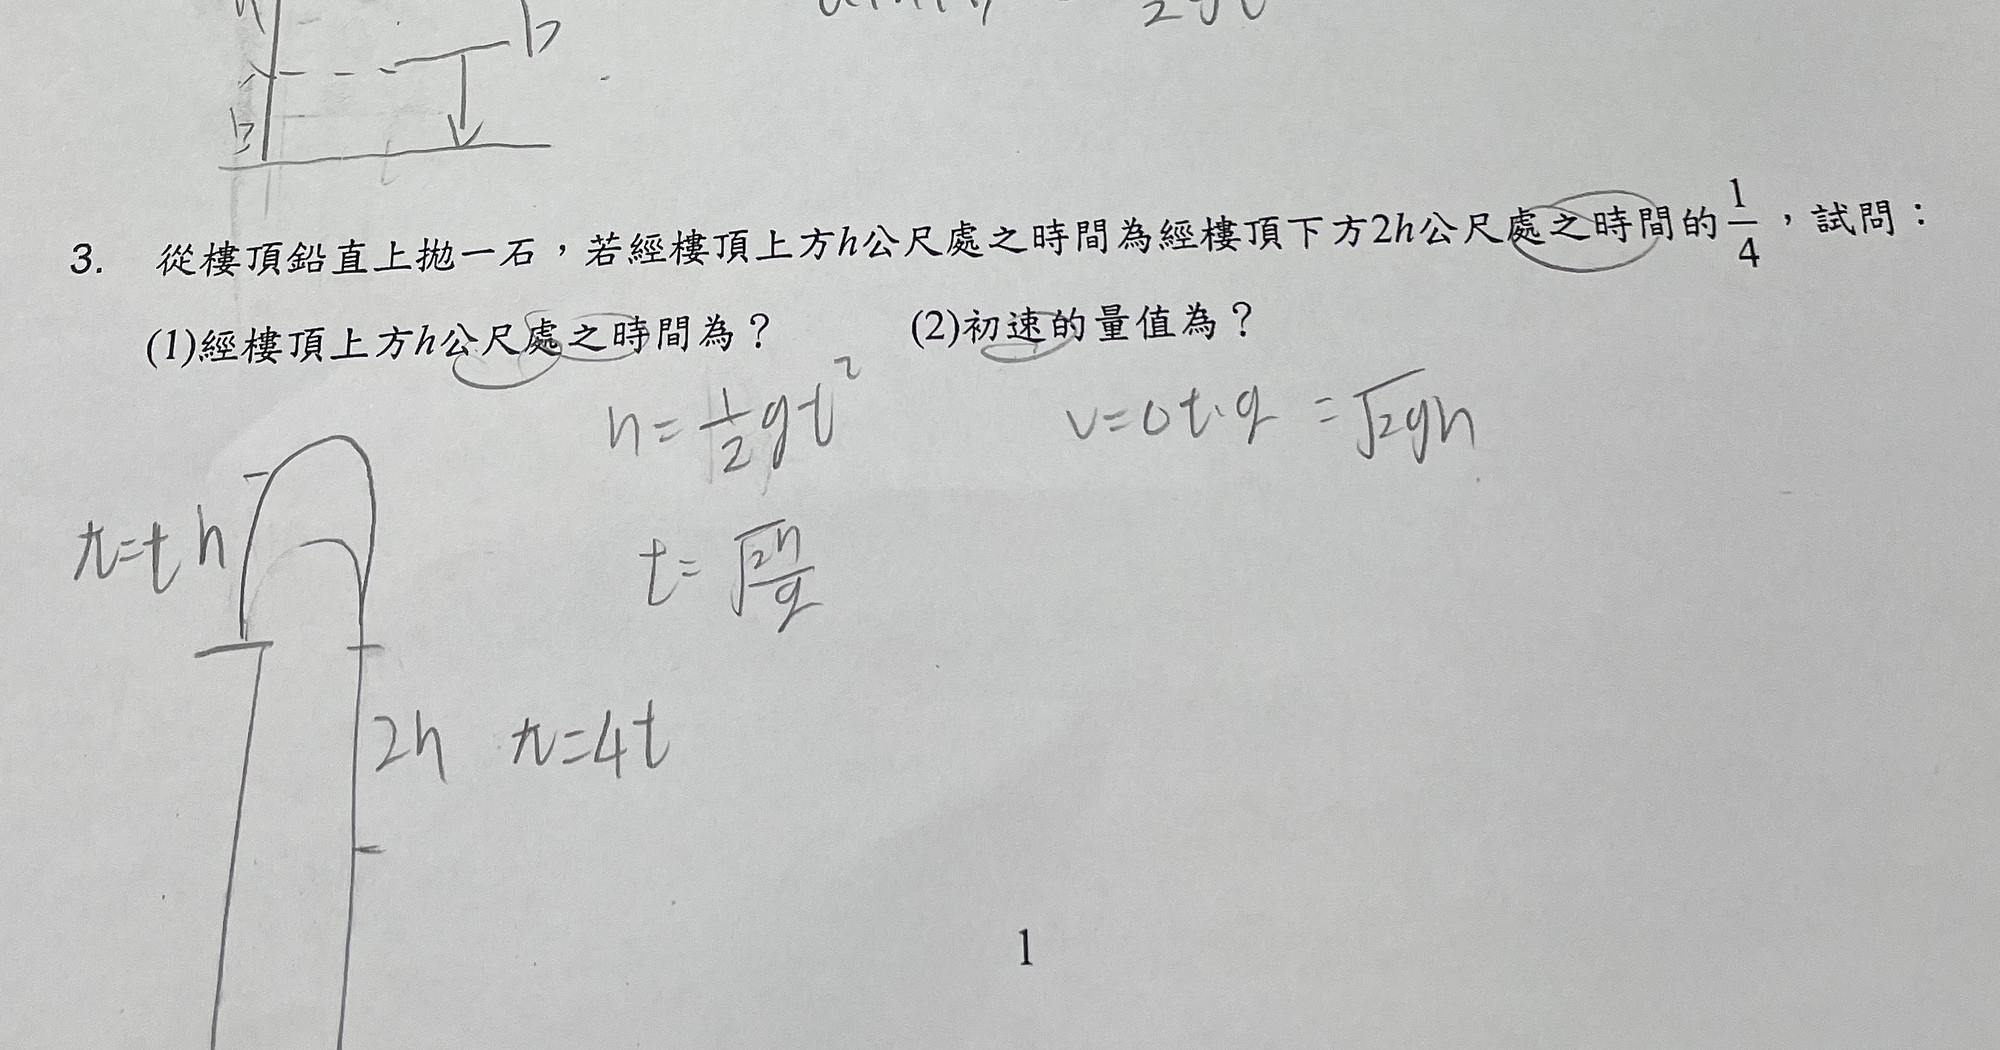 b
b
3. 從樓頂鉛直上拋一石，若經樓頂上方h公尺處之時間為經樓頂下方2h公尺處之時間的1/4，試問：
(1)經樓頂上方h公尺處之時間為？ (2)初速的量值為？
h=1/2gt² v=0t·g =√2gh
t=t h
t=√2h/g
2h t=4t
1